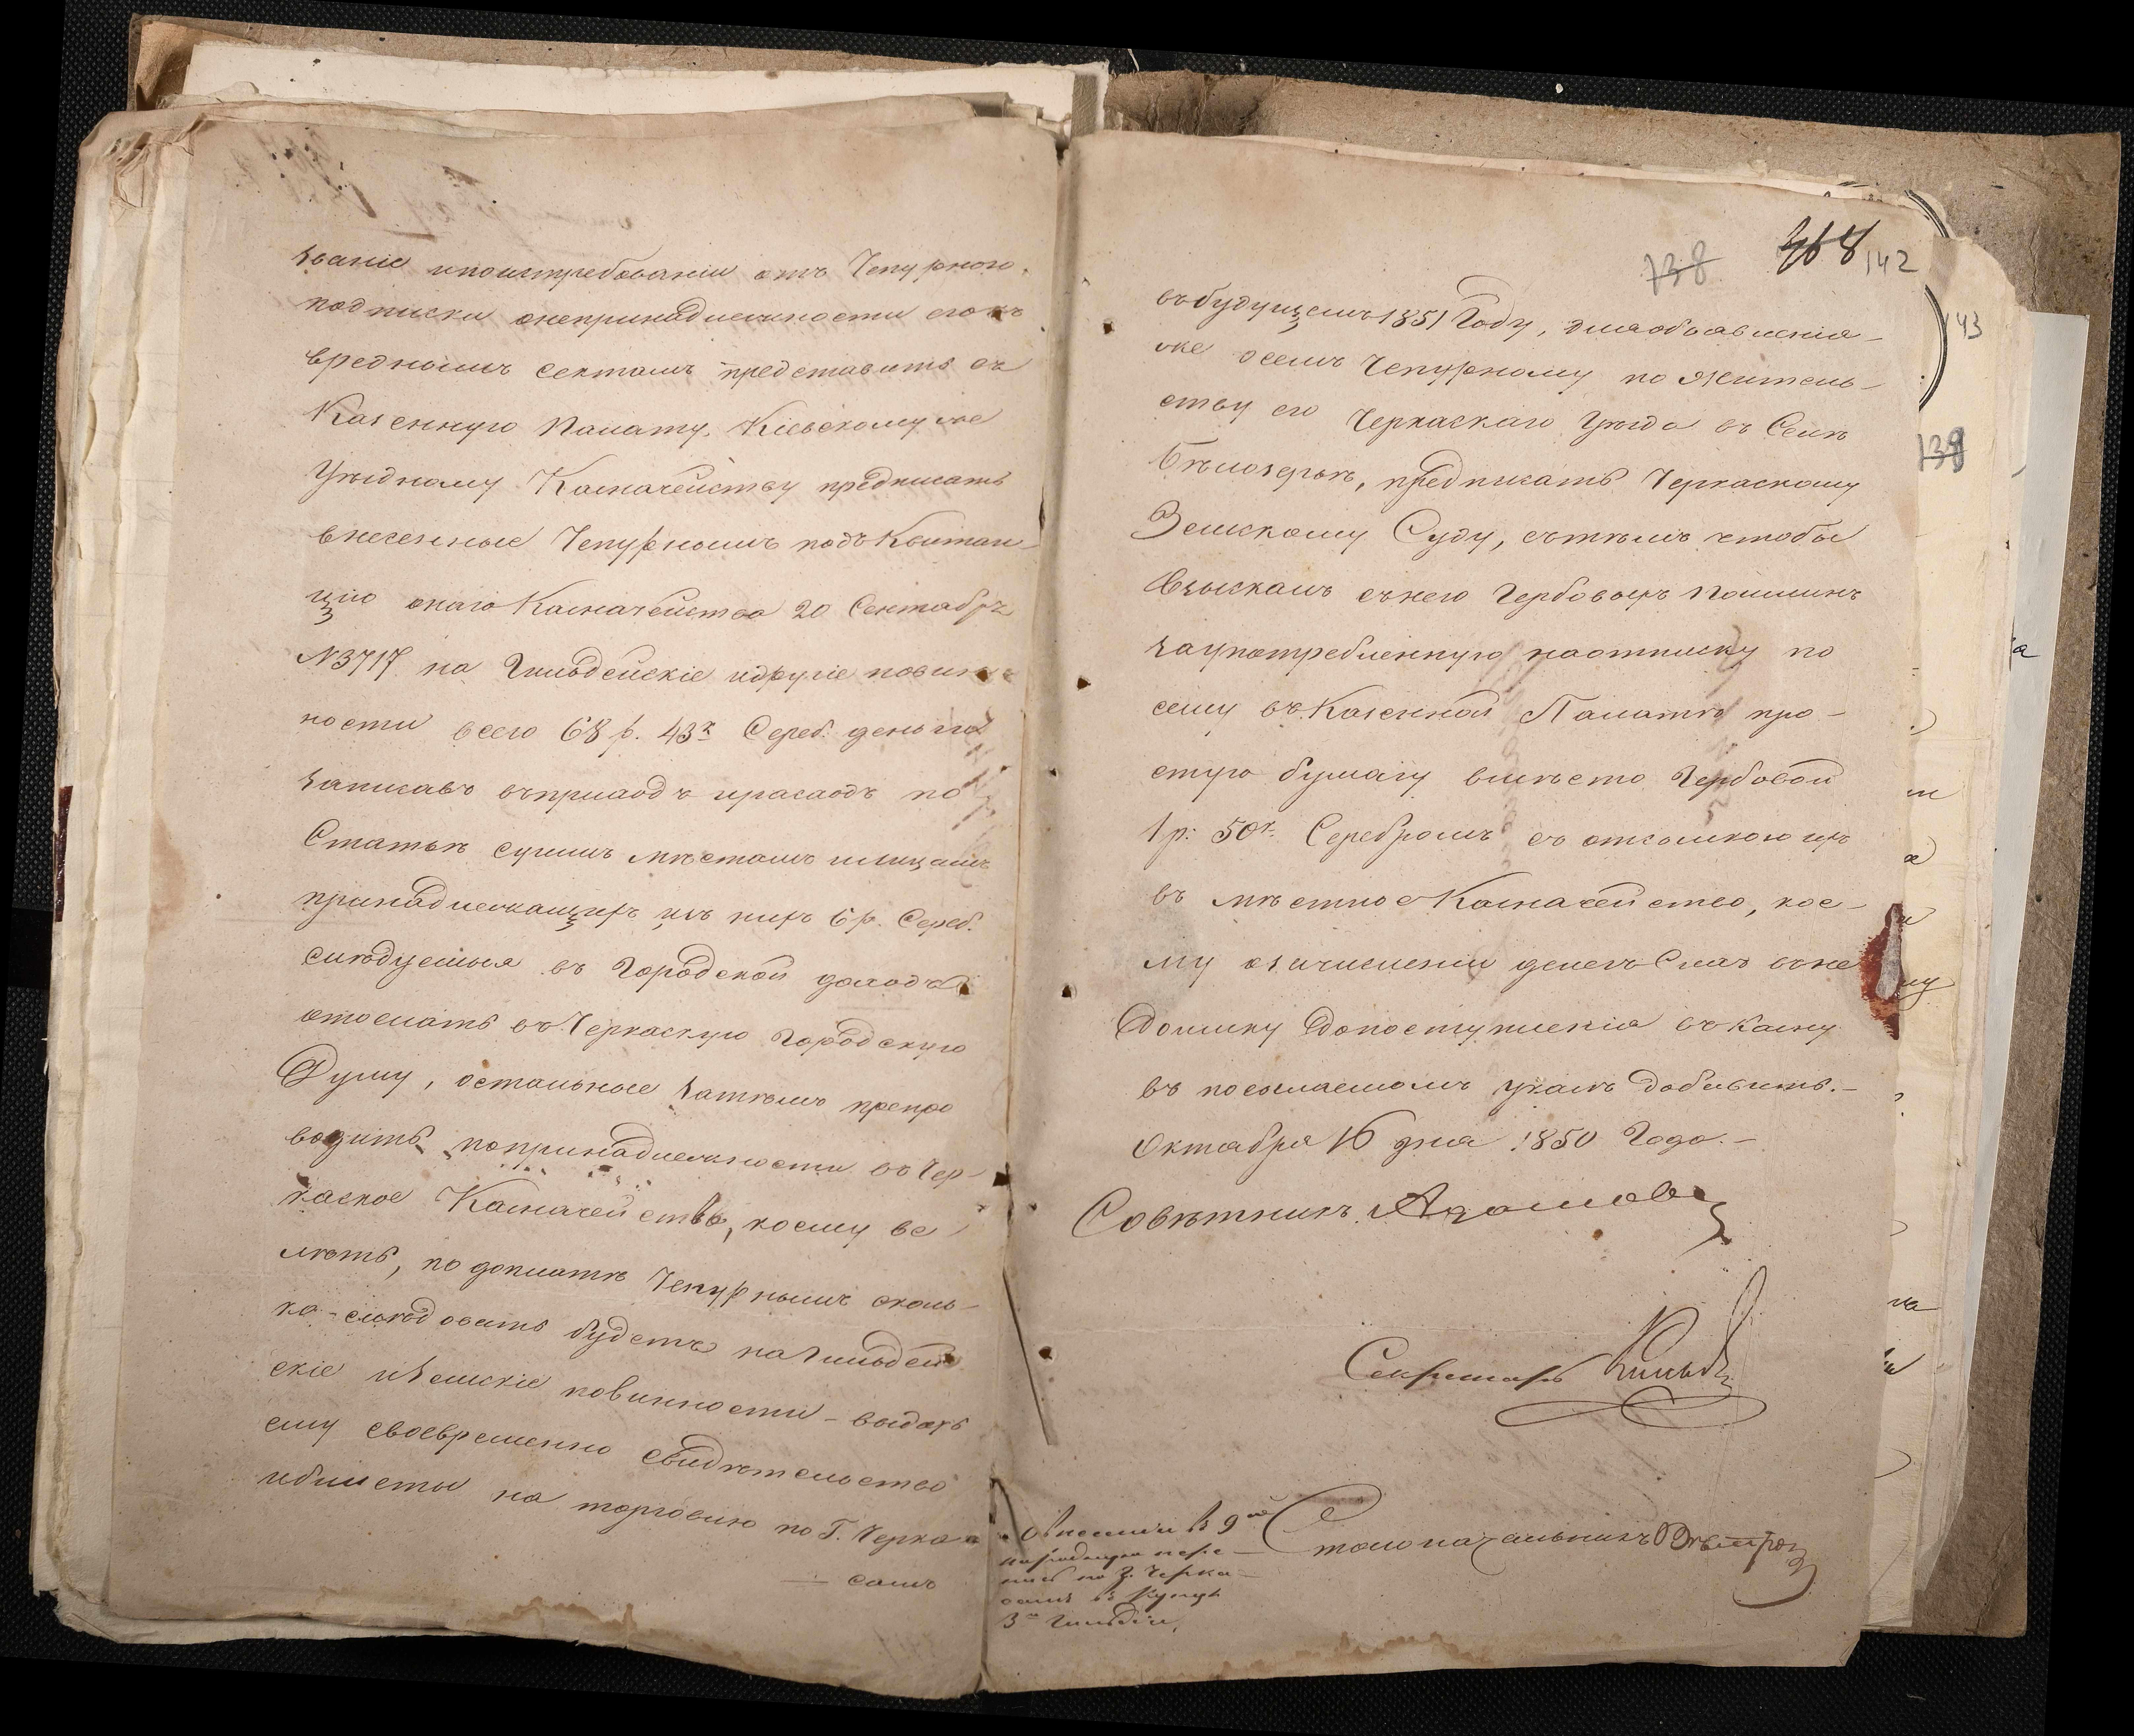 званіе ипоистребованіи отъ Чепурного,
подписки онепринадлежности его къ
вреднымъ сектамъ представить въ
Казенную Палату. Кіевскому же
Уѣздному Казначейству предписать
внесенные Чепурнымъ подъ Квитан-
цію онаго Казначейства 20 Сентабря
№3717 на Гильдейскіе идругіе повин-
ности всего 68 р. 43к Сереб. деньги
записавъ въприходъ ирасходъ по
Статьѣ суммъ мѣстамъ илицамъ
принадлежащихъ изъ нихъ 6 р. Сереб.
слѣдуемыя въ Городской доходъ
отослать въ Черкаскую Городскую
Думу, остальные затѣмъ препро
водить попринадлежности въ Чер-
каское Казначейство, коему ве
лѣть, по доплатѣ Чепурнымъ сколь-
ко-слѣдовать будетъ на Гильдей
скіе иЗемскіе повинности-выдать
ему своевременно свидѣтельство
ибилеты на торговлю по Г. Черка-
самъ
138 368 142
въбудущемъ 1851 Году, дляобъявленія-
же осемъ Чепурному по Житель-
ству его Черкаскаго Уѣзда въ Селѣ
Бѣлозерьѣ, предписать Черкаскому
Земскому Суду, сътѣмъ чтобы
Взыскалъ снего Гербовыхъ Пошлинъ
заупотребленную наотписку по
сему въ Казенной Палатѣ про-
стую бумагу вмѣсто Гербовой
1 р: 50к. Серебромъ съ отсылкою ихъ
въ мѣстное Казначейство, кое-
му озачисленіи денегъ Сихъ въне
Доимку Допоступленія въ Казну
въ посылаемомъ указѣ добавить.-
Октабря 16 дня 1850 Года.-
Совѣтникъ
Секретарь
Столоначальникъ
3й Гильдіи,
43
138